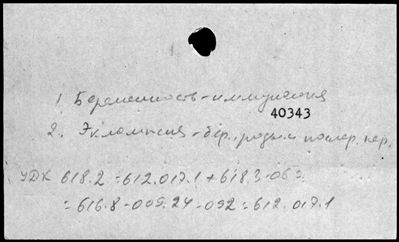 1. Беременность - иммунология
40343
2. Эклампсия - бер., роды и послер. пер.
УДК 618.2 = 612.017.1 + 618.3-06 =
= 616.8-009.24-092 = 612.017.1